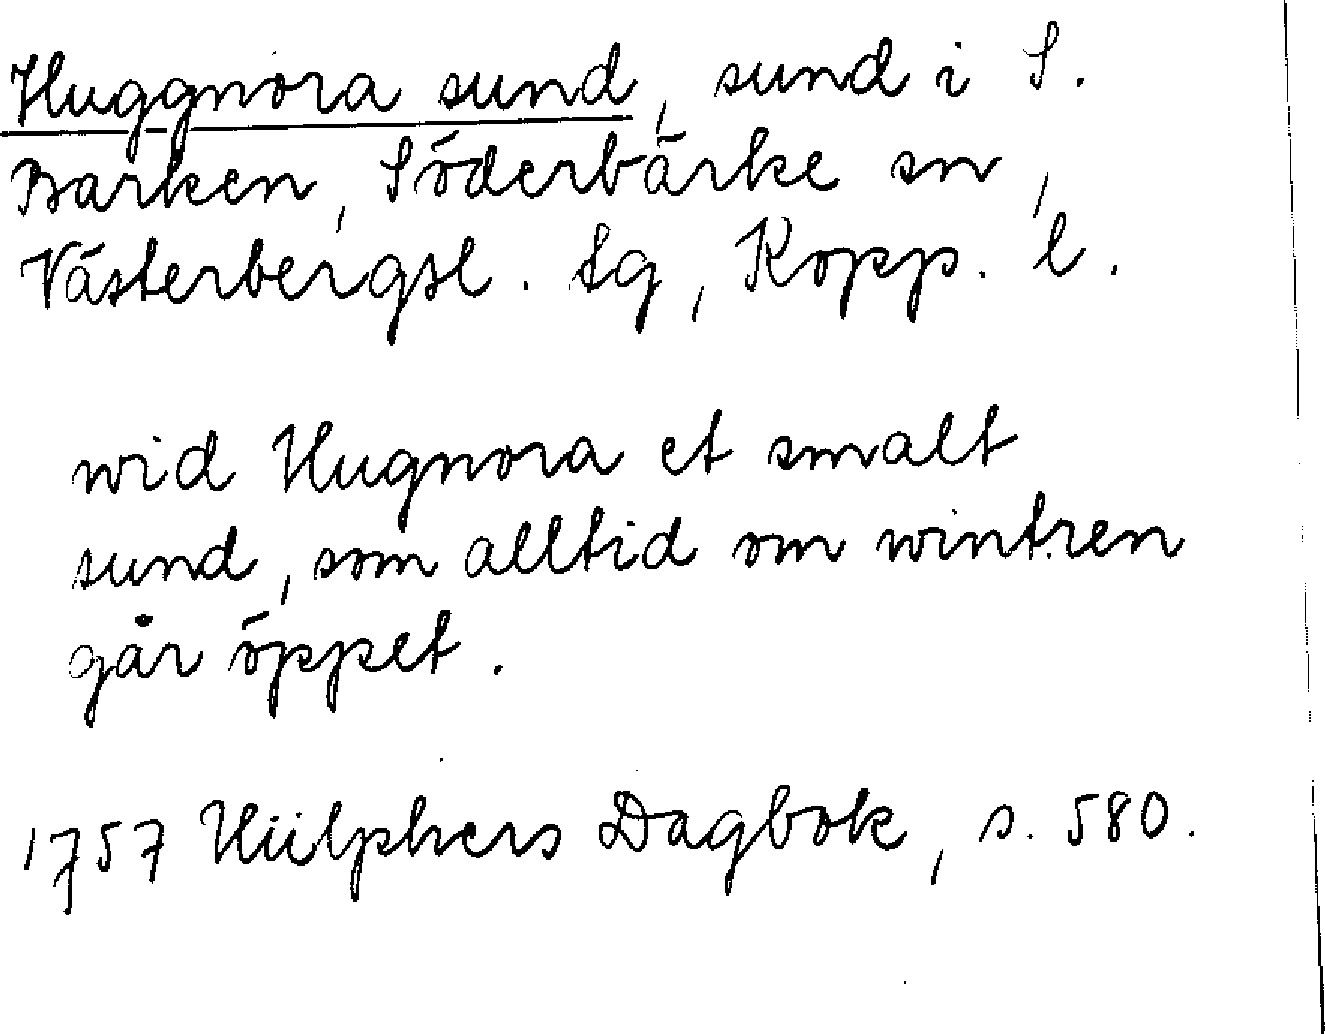 Huggnora sund, sund i S.
Barken, Söderbärke sn,
Västerbergsl. tg, Kopp. l.
wid Hugnora et smalt
sund, som alltid om wintren
går öppet.
1757 Hülphers Dagbok, s. 580.